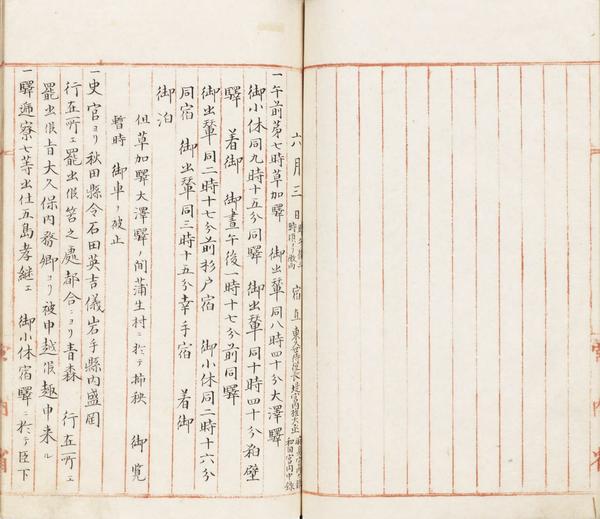 六月三日 宿直
一午前第七時草加驛 御出輦同八時四十分大澤驛
御小休同九時十五分同驛 御出輦同十時四十分粕壁
驛 着御 御晝午後一時十七分前同驛
御出輦同二時十七分前杉戸宿 御小休同二時十六分
同宿 御出輦同三時十五分幸手宿 着御
御泊
但草加驛大澤驛ノ間蒲生村ニ於テ挿秧 御覧
暫時 御車ヲ被止
一史官ヨリ秋田縣令石田英吉儀岩手縣内盛岡
行在所エ罷出候筈之處都合ニヨリ青森 行在所エ
罷出候旨大久保内務卿ヨリ被申越候趣申来ル
一驛逓寮七等出仕五島孝継エ 御小休宿驛ニ於テ臣下